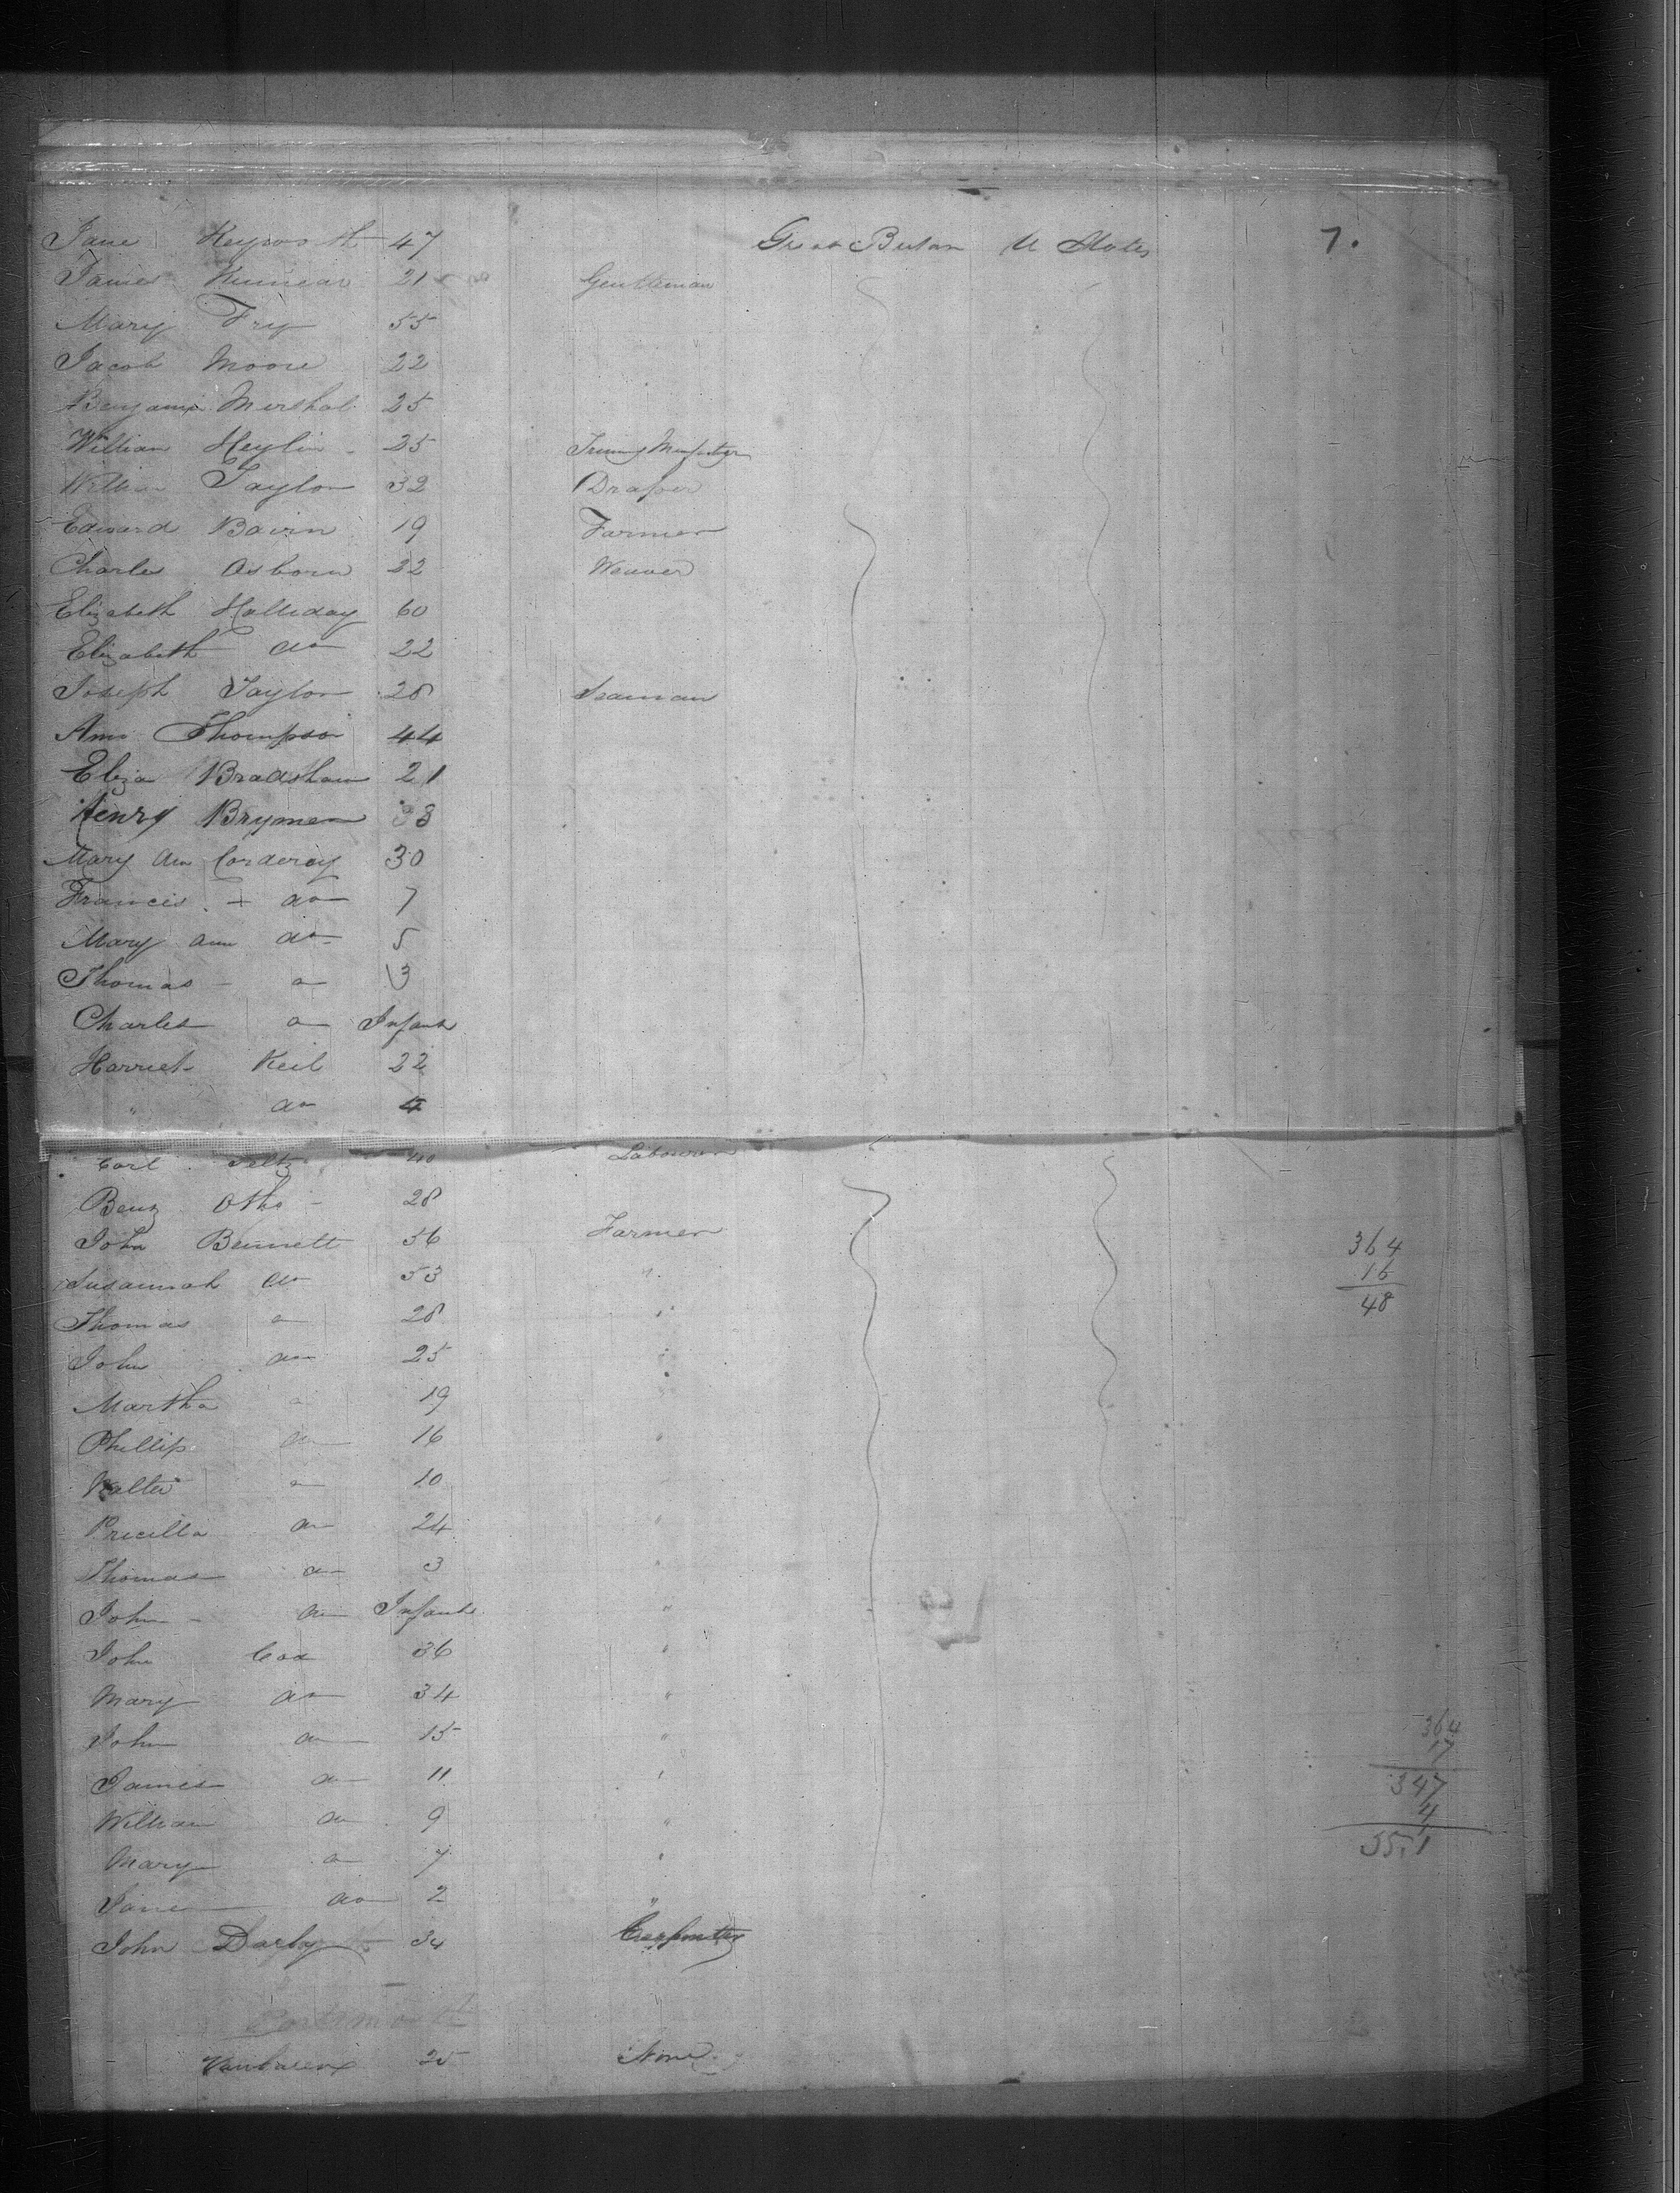 Jane Keyworth 47 Great Britan U States 7.
James Kinnear 21 Gentleman
Mary Fry 55
Jacob Moore 22
Benjamin Mershal 25
William Heylin 25
William Taylor 32 Draper
Edward Bavin 19 Farmer
Charles Osborn 22 Weaver
Elizabeth Halliday 60
Elizabeth do 22
Joseph Taylor 28 Seaman
Ann Thompson 44
Eliza Bradshaw 21
Henry Brymer 33
Mary Ann Corderoy 30
Francis do 7
Mary Ann do 5
Thomas do 3
Charles do Infant
Harriet Keil 22
" do 4
Carl 40 Labourer
Benz Otho 28
John Bennett 56 Farmer 364
Susannah do 53 " 16
Thomas do 28 " 48
John do 25 "
Martha do 19 "
Phillip do 16 "
Walter do 10
Pricilla do 24 "
Thomas do 3 "
John do Infant "
John Cox 36 "
Mary do 34 " 364
John do 15 " 17
James do 11 " 347
William do 9 " 4
Mary do 7 " 351
Jane do 2 "
John Darby 34 Carpenter
Portsmouth
25 None